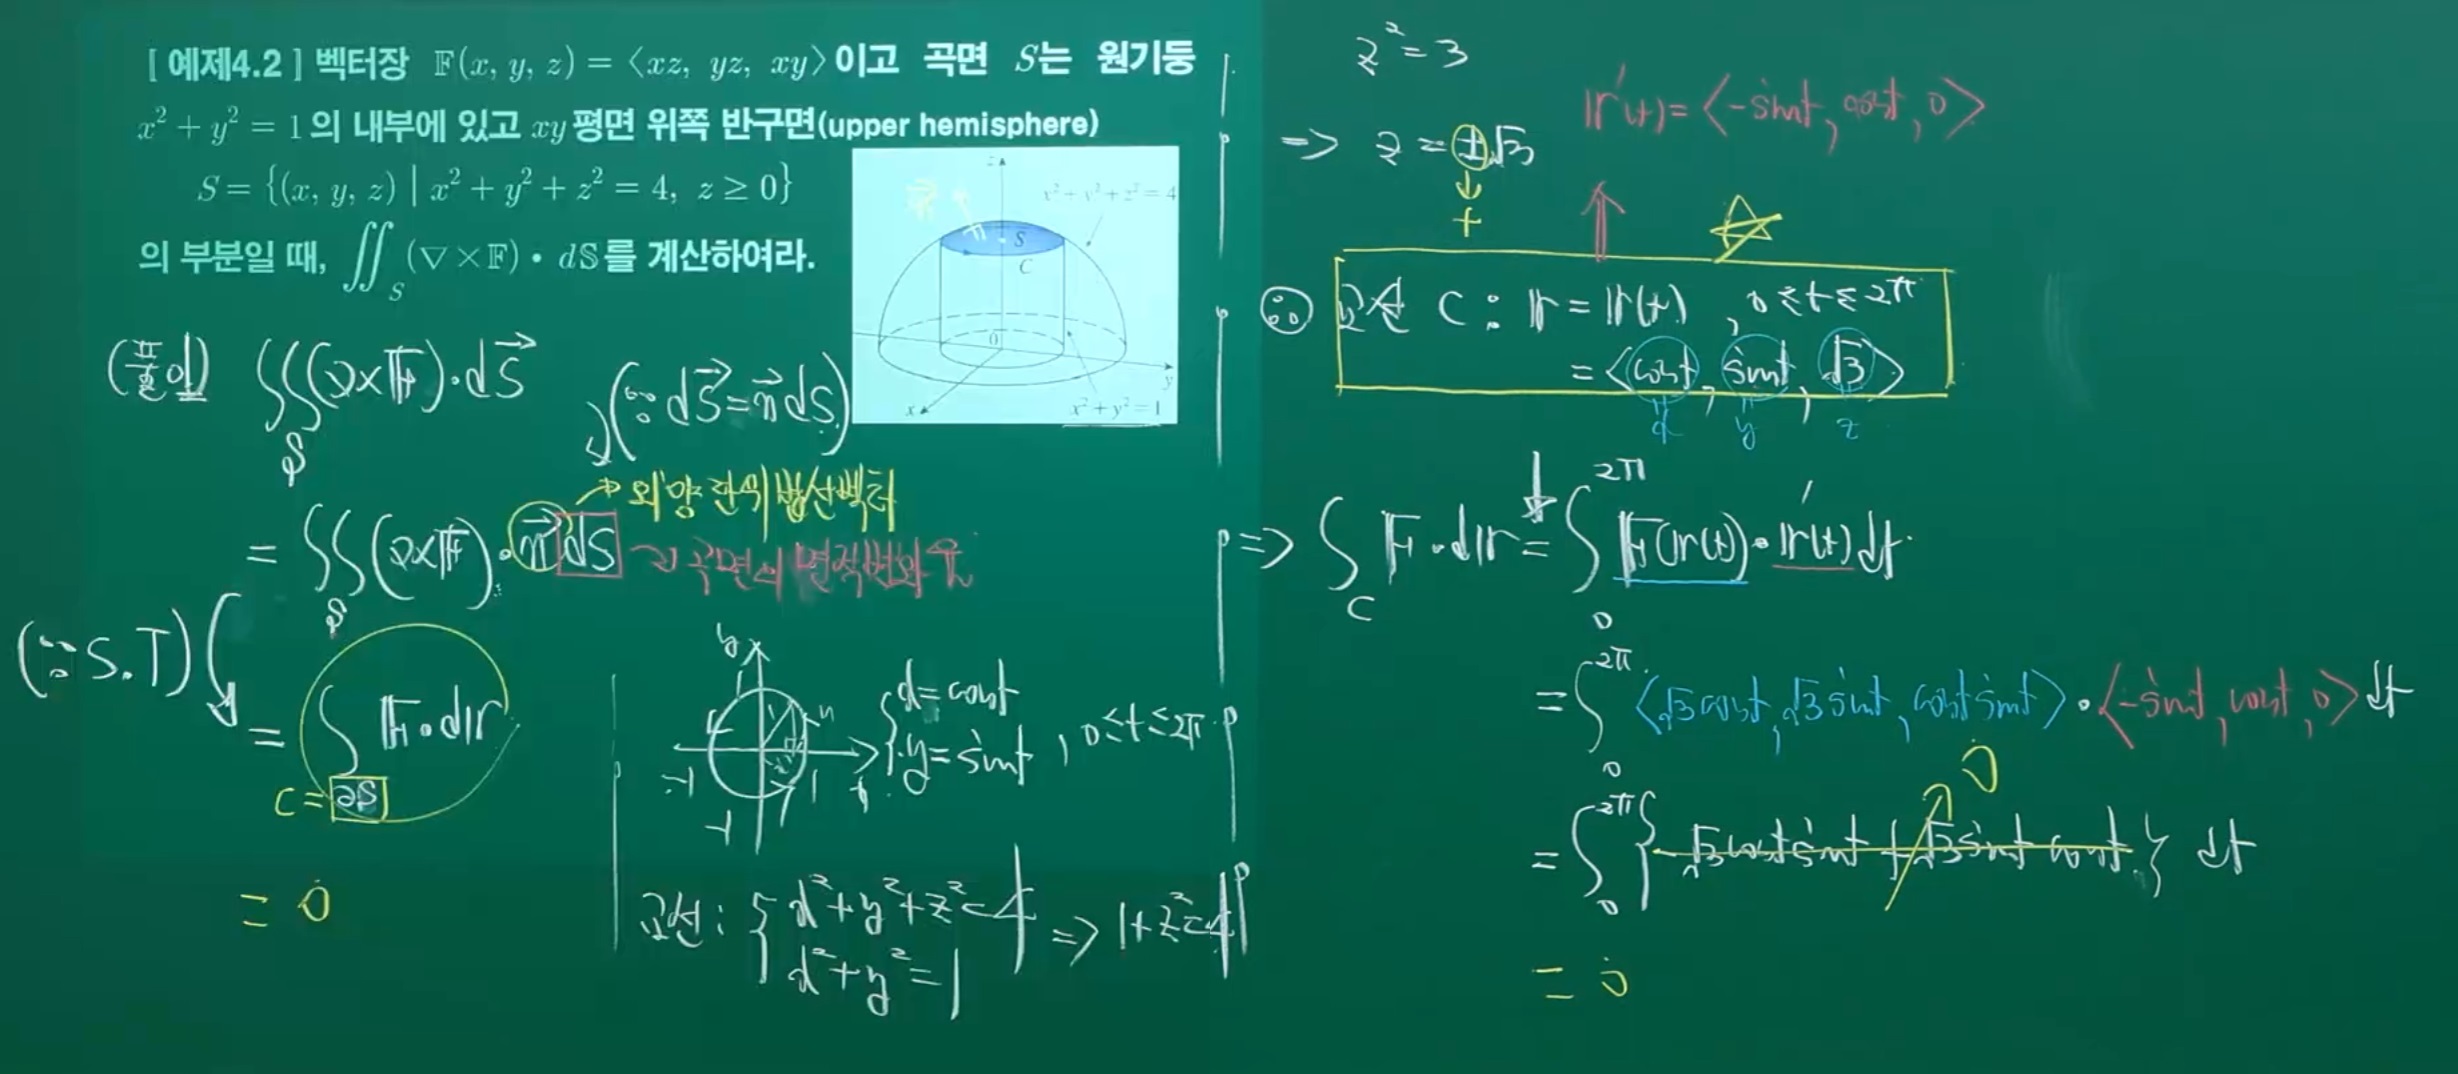 [ 예제4.2 ] 벡터장 𝔽(x, y, z) = ⟨xz, yz, xy⟩이고 곡면 S는 원기둥
x² + y² = 1의 내부에 있고 xy평면 위쪽 반구면(upper hemisphere)
S = {(x, y, z) | x² + y² + z² = 4, z ≥ 0}
의 부분일 때, ∬_S (∇×𝔽)• d𝕊를 계산하여라.
z
x² + y² + z² = 4
S
C
0
y
x
x² + y² = 1
(풀이) ∬_S (∇×𝔽)·dS⃗
(∵ dS⃗ = n⃗ dS)
= ∬_S (∇×𝔽)·n⃗ dS
→ 외향 단위 법선벡터
→ 곡면의 면적변화율
(∵ S.T)
= ∫ 𝔽·d𝕣
C = ∂S
= 0
y
1
-1 1 x
-1
{ x = cost
y = sint , 0≤t≤2π
교선 : { x²+y²+z²=4
x²+y²=1
⇒ 1+z²=4
z² = 3
⇒ z = ±√3
↓
+
𝕣'(t) = ⟨-sint, cost, 0⟩
∴ 교선 C : 𝕣 = 𝕣(t) , 0≤t≤2π
= ⟨cost, sint, √3⟩
x y z
⇒ ∫_C 𝔽·d𝕣 = ∫_0^{2π} 𝔽(𝕣(t))·𝕣'(t)dt
= ∫_0^{2π} ⟨√3cost, √3sint, costsint⟩·⟨-sint, cost, 0⟩dt
= ∫_0^{2π} {-√3costsint + √3sint cost} dt
0
= 0